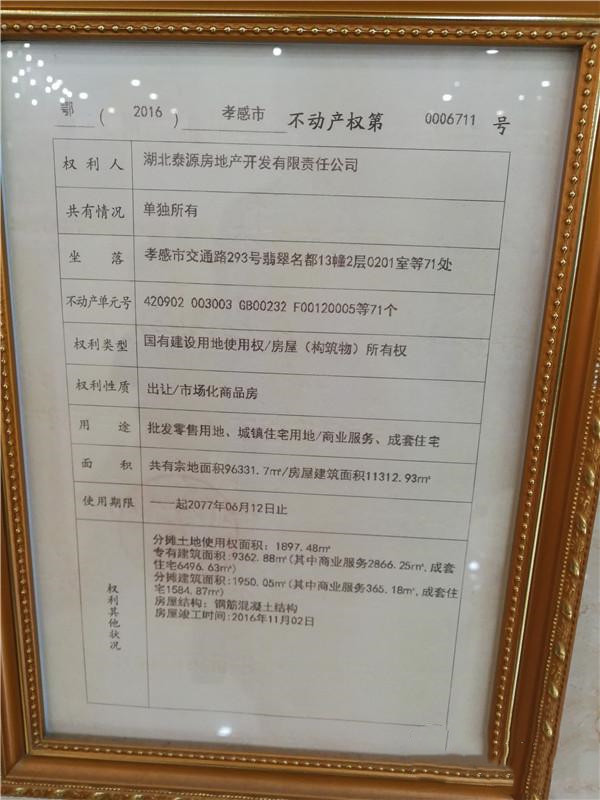 鄂 ( 2016 ) 孝感市 不动产权第 0006711 号
权利人 湖北泰源房地产开发有限责任公司
共有情况 单独所有
坐落 孝感市交通路293号翡翠名都13幢2层0201室等71处
不动产单元号 420902 003003 GB00232 F00120005等71个
权利类型 国有建设用地使用权/房屋（构筑物）所有权
权利性质 出让/市场化商品房
用途 批发零售用地、城镇住宅用地/商业服务、成套住宅
面积 共有宗地面积96331.7㎡/房屋建筑面积11312.93㎡
使用期限 ——起2077年06月12日止
权利其他状况
分摊土地使用权面积：1897.48㎡
专有建筑面积:9362.88㎡(其中商业服务2866.25㎡,成套
住宅6496.63㎡)
分摊建筑面积:1950.05㎡(其中商业服务365.18㎡,成套住
宅1584.87㎡)
房屋结构：钢筋混凝土结构
房屋竣工时间:2016年11月02日